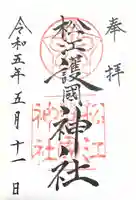 奉拝
松江護國神社
令和五年五月十一日